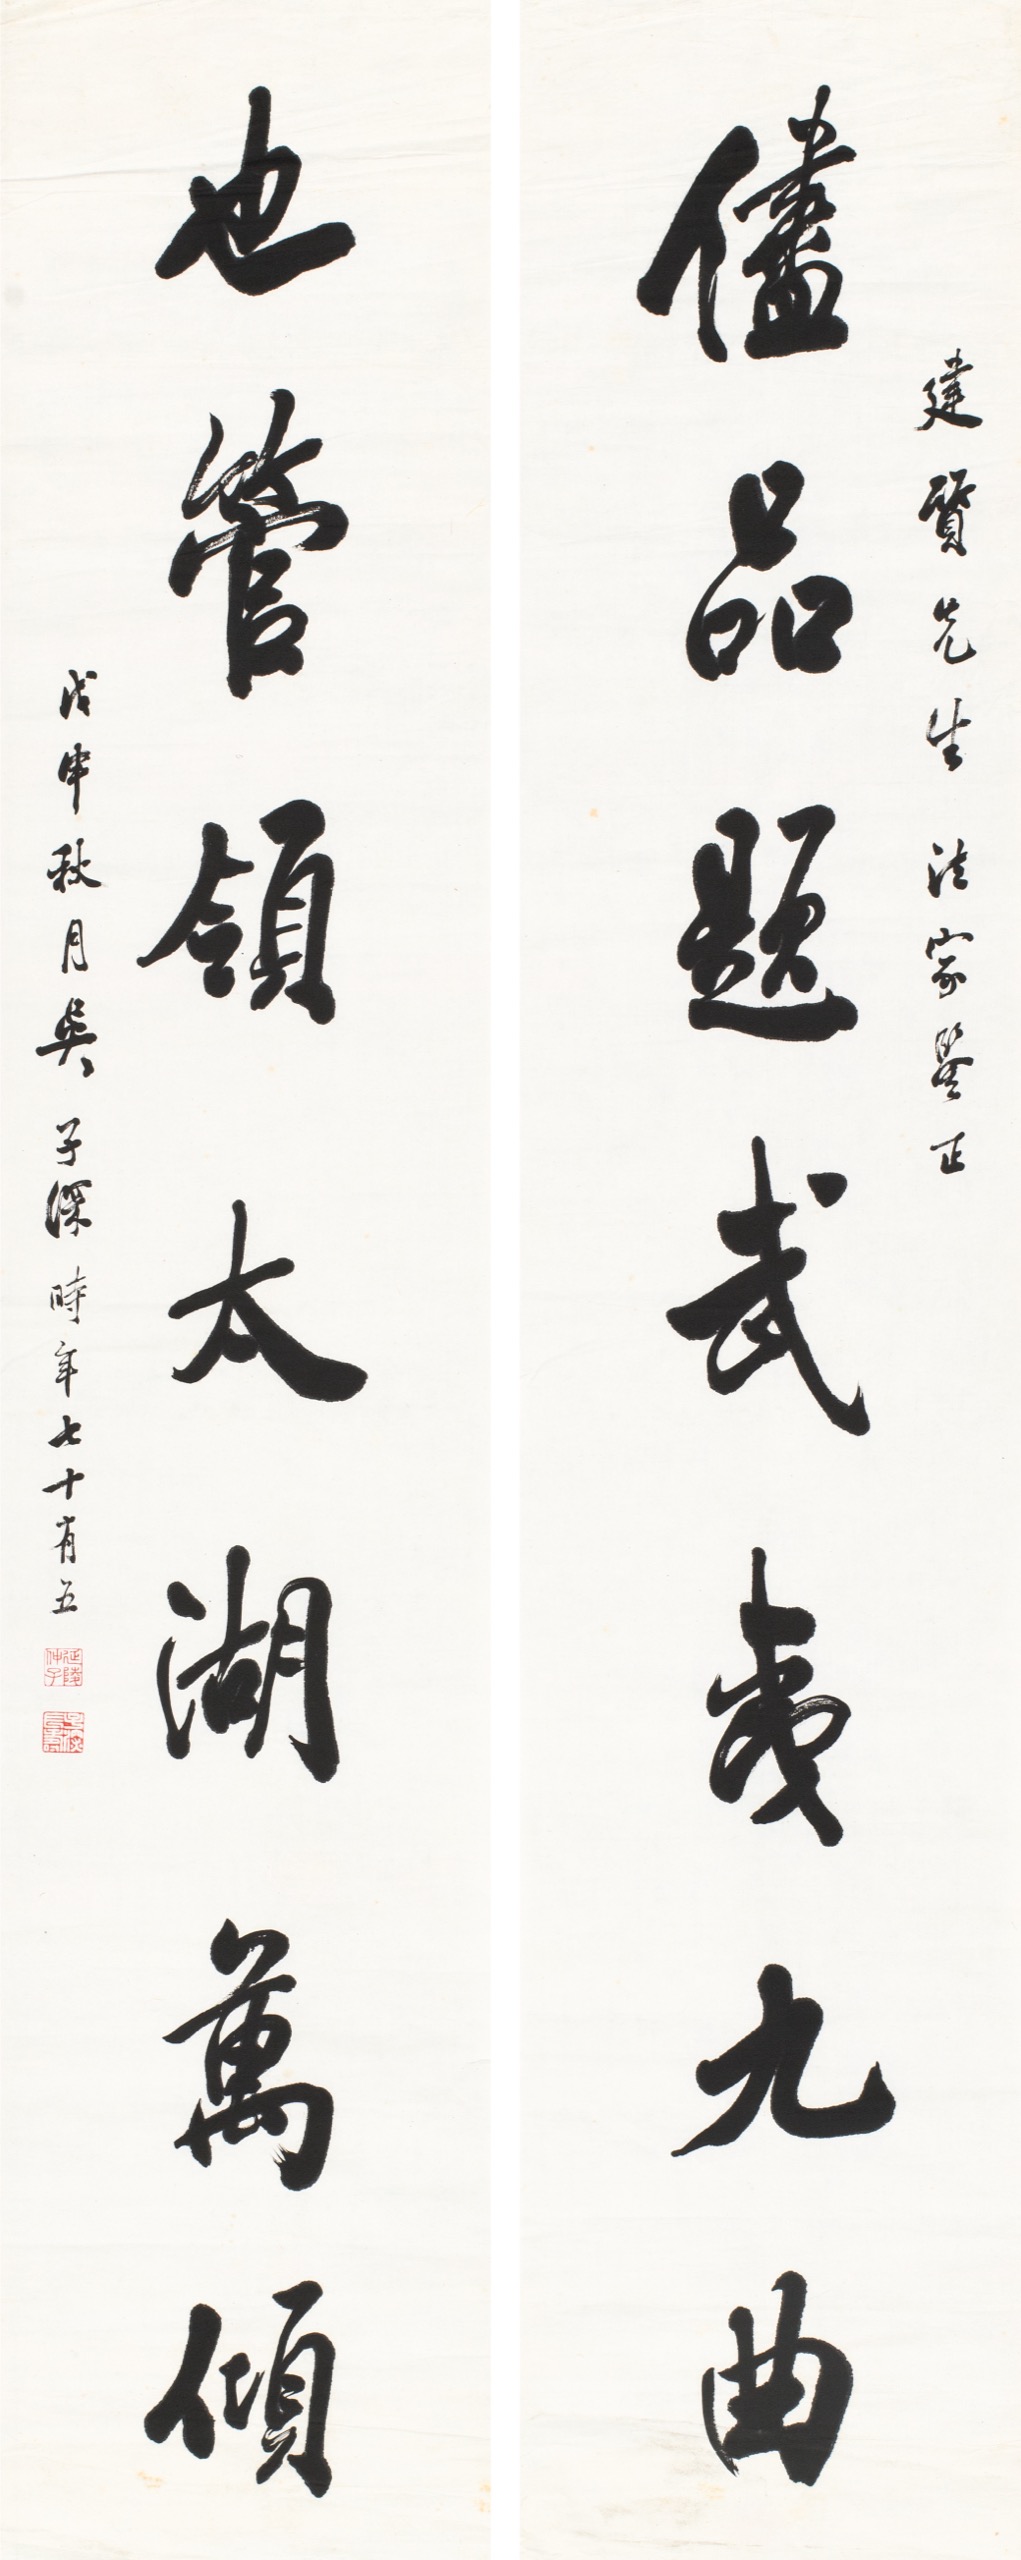 建賢先生法家鑒正
儘品題武夷九曲
也管領太湖萬傾
戊申秋月吳子深時年七十有五
延陵仲子